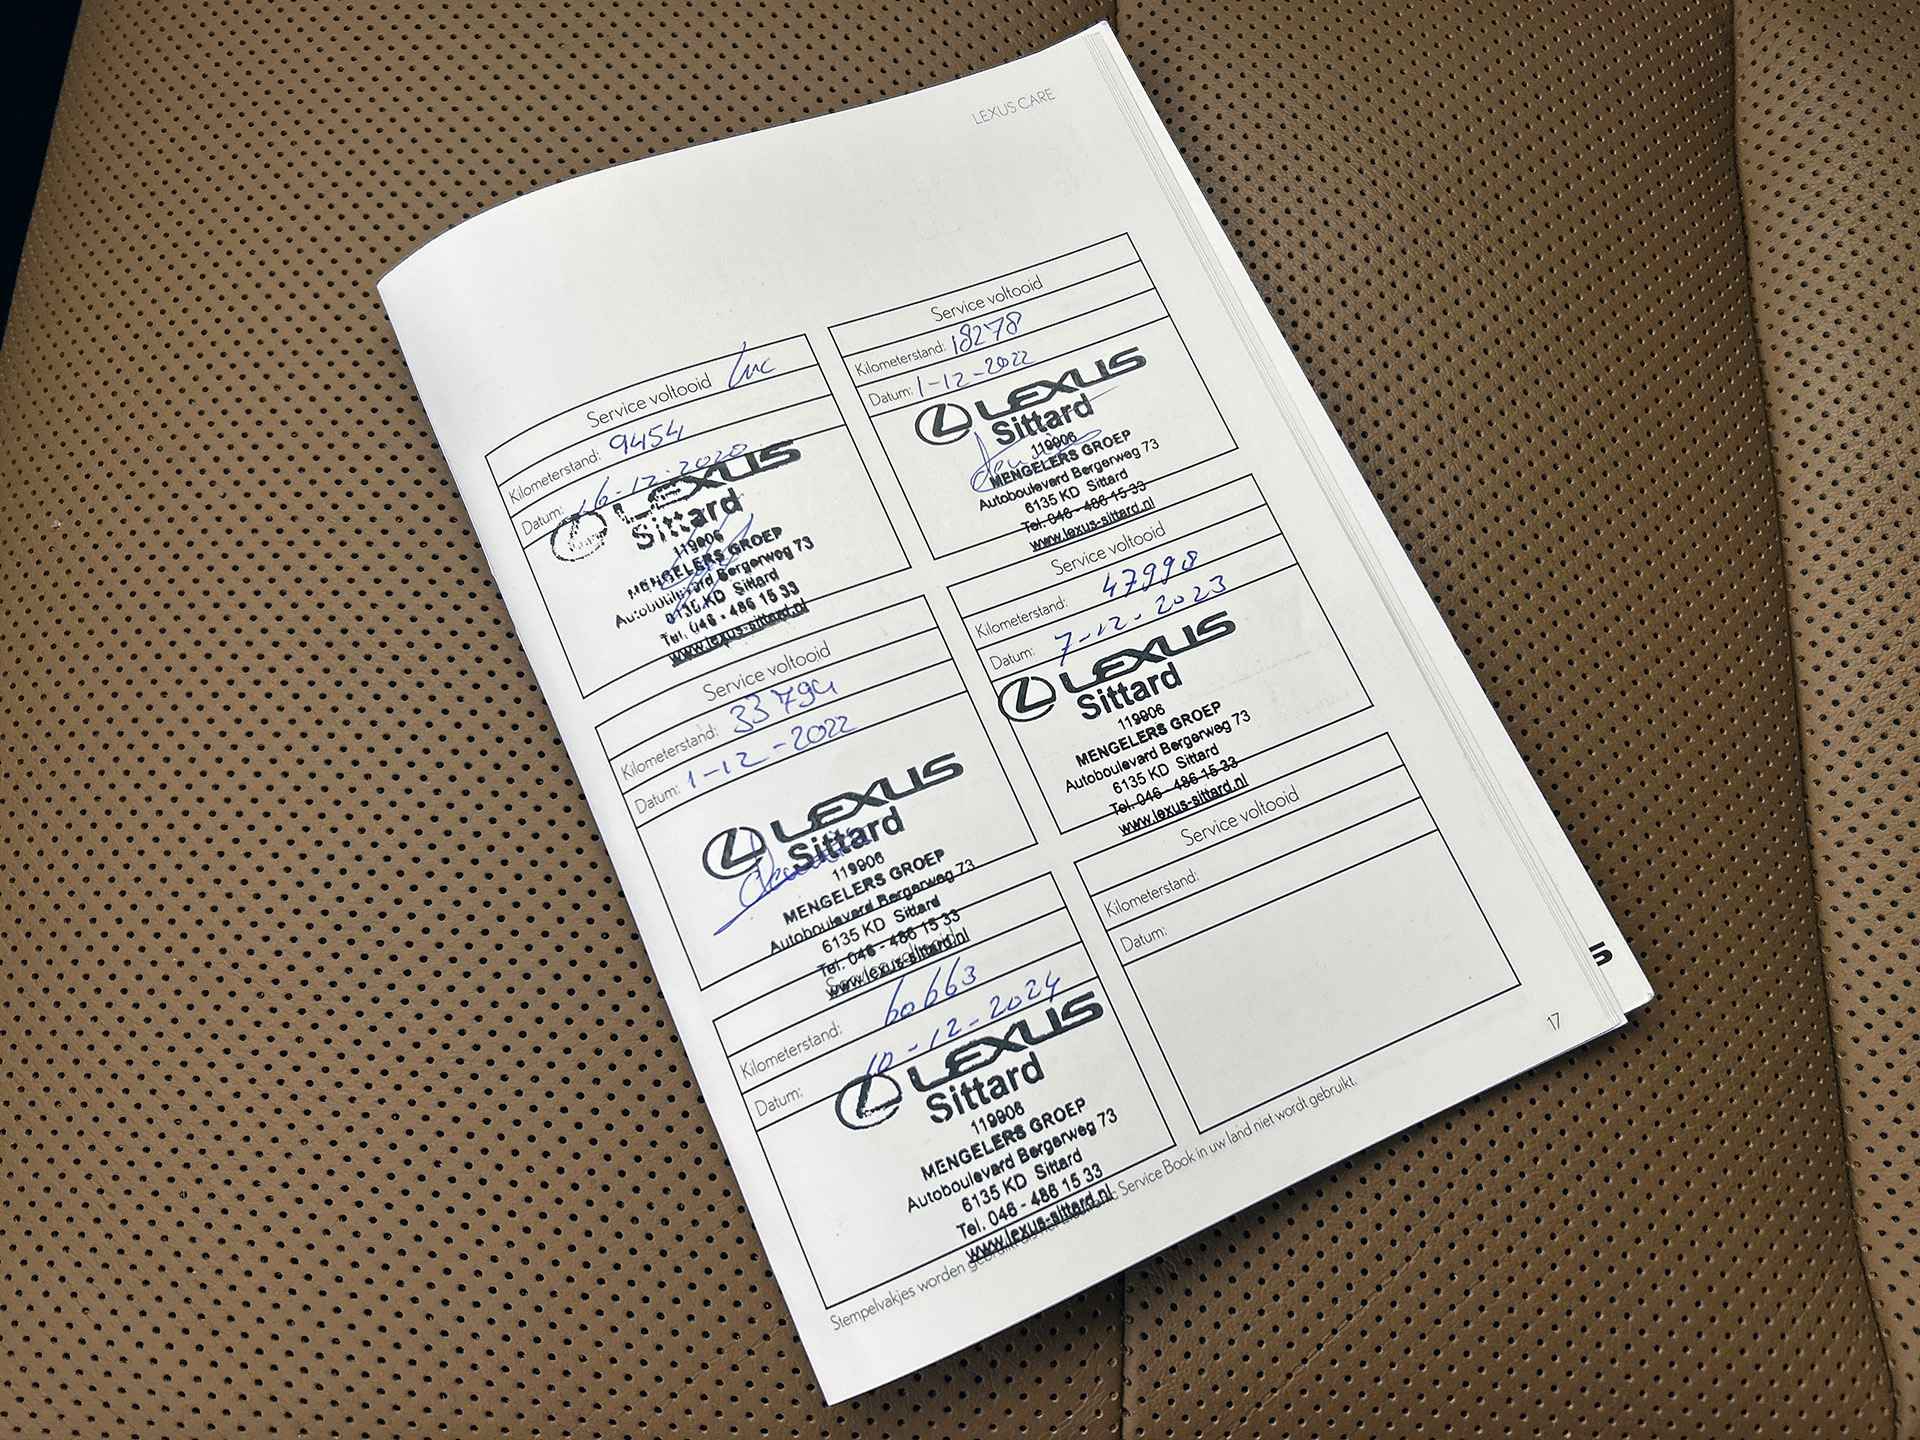 LEXUS CARE
Service voltooid Luc
Kilometerstand: 9454
Datum: 16-12-2020
LEXUS
Sittard
119906
MENGELERS GROEP
Autoboulevard Bergerweg 73
6135 KD Sittard
Tel. 046 - 486 15 33
www.lexus-sittard.nl
Service voltooid
Kilometerstand: 18278
Datum: 1-12-2022
LEXUS
Sittard
119906
MENGELERS GROEP
Autoboulevard Bergerweg 73
6135 KD Sittard
Tel. 046 - 486 15 33
www.lexus-sittard.nl
Service voltooid
Kilometerstand: 33794
Datum: 1-12-2022
LEXUS
Sittard
119906
MENGELERS GROEP
Autoboulevard Bergerweg 73
6135 KD Sittard
Tel. 046 - 486 15 33
www.lexus-sittard.nl
Service voltooid
Kilometerstand: 47998
Datum: 7-12-2023
LEXUS
Sittard
119906
MENGELERS GROEP
Autoboulevard Bergerweg 73
6135 KD Sittard
Tel. 046 - 486 15 33
www.lexus-sittard.nl
Service voltooid
Kilometerstand: 60663
Datum: 10-12-2024
LEXUS
Sittard
119906
MENGELERS GROEP
Autoboulevard Bergerweg 73
6135 KD Sittard
Tel. 046 - 486 15 33
www.lexus-sittard.nl
Service voltooid
Kilometerstand:
Datum:
Stempelvakjes worden gebruikt Service Book in uw land niet wordt gebruikt.
17